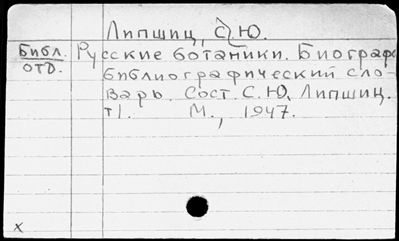 Липшиц, С. Ю.
Библ. отд.
Русские ботаники. Биограф.
библиографический сло-
варь. Сост. С. Ю. Липшиц.
т1. М., 1947.
x